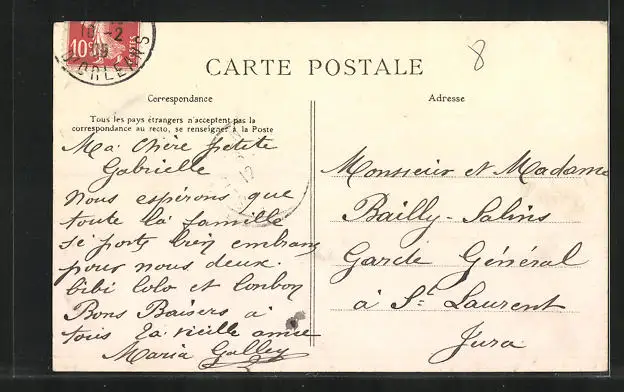 10-2
09
D'ORLEENS
10c
POSTES
8
CARTE POSTALE
Correspondance
Adresse
Tous les pays étrangers n'acceptent pas la
correspondance au recto, se renseigner à la Poste
Ma chère petite
Gabrielle
nous espérons que
toute la famille
se porte bien embrass
pour nous deux.
bibi lolo et
Bons Baisers à
tous la vieille amie
Maria Galley
Monsieur et Madame
Bailly-Salins
Garde Général
à St Laurent
Jura